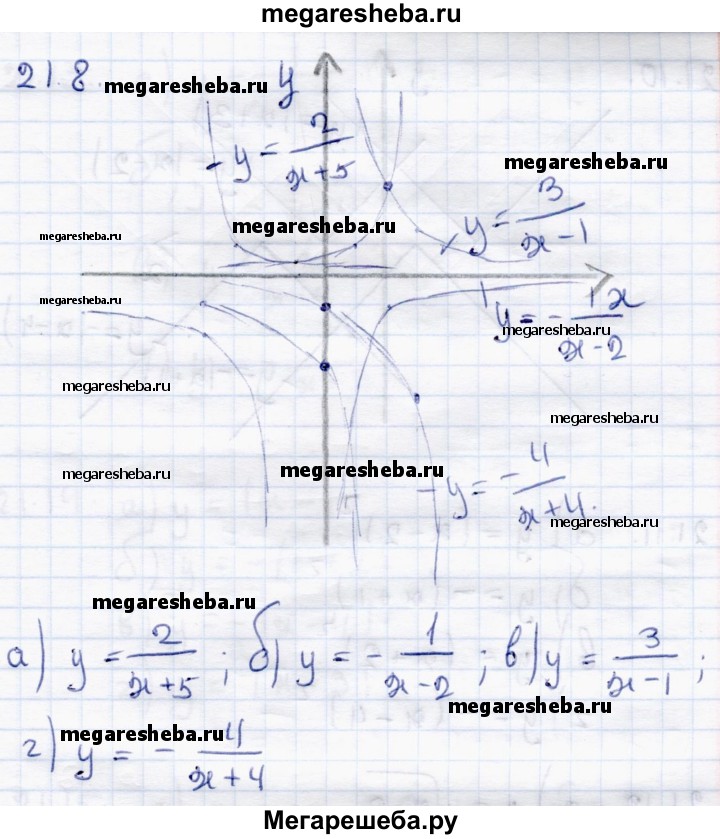 megaresheba.ru
21.8. megaresheba.ru y
y = 2/(x+5)
megaresheba.ru
megaresheba.ru
y = 3/(x-1)
megaresheba.ru
megaresheba.ru
x
y = - 1/(x-2)
megaresheba.ru
megaresheba.ru
megaresheba.ru
megaresheba.ru
megaresheba.ru
y = -4/(x+4).
megaresheba.ru
megaresheba.ru
а) y = 2/(x+5) ; б) y = - 1/(x-2) ; в) y = 3/(x-1) ;
megaresheba.ru
г) y = - 4/(x+4)
megaresheba.ru
Мегарешеба.ру